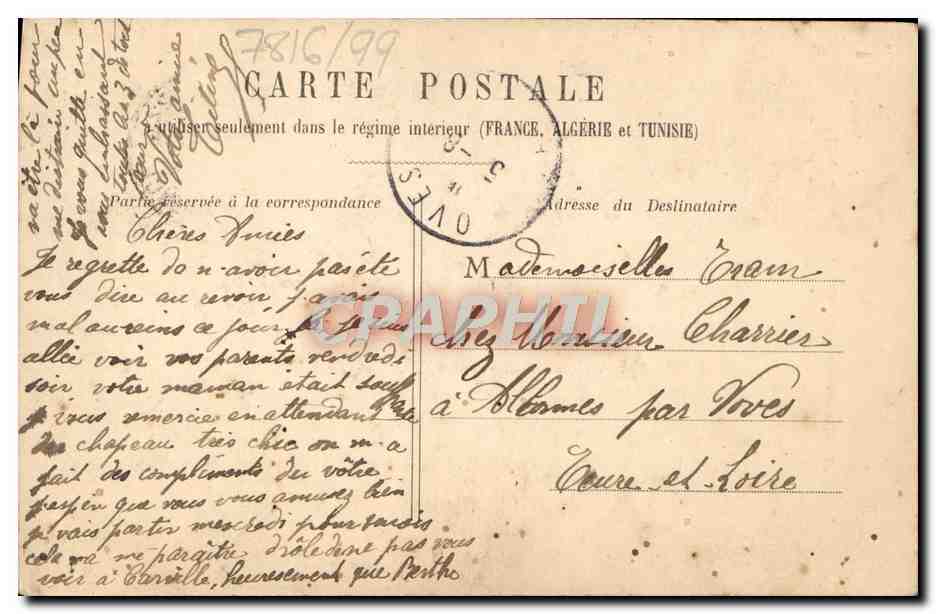 7816/99
CARTE POSTALE
à utiliser seulement dans le régime intérieur (FRANCE, ALGÉRIE et TUNISIE)
Partie réservée à la correspondance
Adresse du Destinataire
OVES
CRAPHTI
Chères Amies
Je regrette de n-avoir pas été
vous dire au revoir j'avais
mal au reins ce jour je suis
allée voir vos parents vendredi
soir votre maman était souffrante
je vous remercie en attendant
du chapeau très chic on m-a
fait des compliments du vôtre
j'espèr que vous vous amusez bien
je vais partir mercredi pour mois
cela va me paraître drôle de ne pas vous
voir à Carville, heuresement que Berthe
va être là pour
me distraire un peu
Je vous quitte en
vous embrassant
toutes les 3 de tout
cœur
Votre amie
Mademoiselles Tram
chez Monsieur Charrier
à Allonnes par Voves
Eeure et Loire